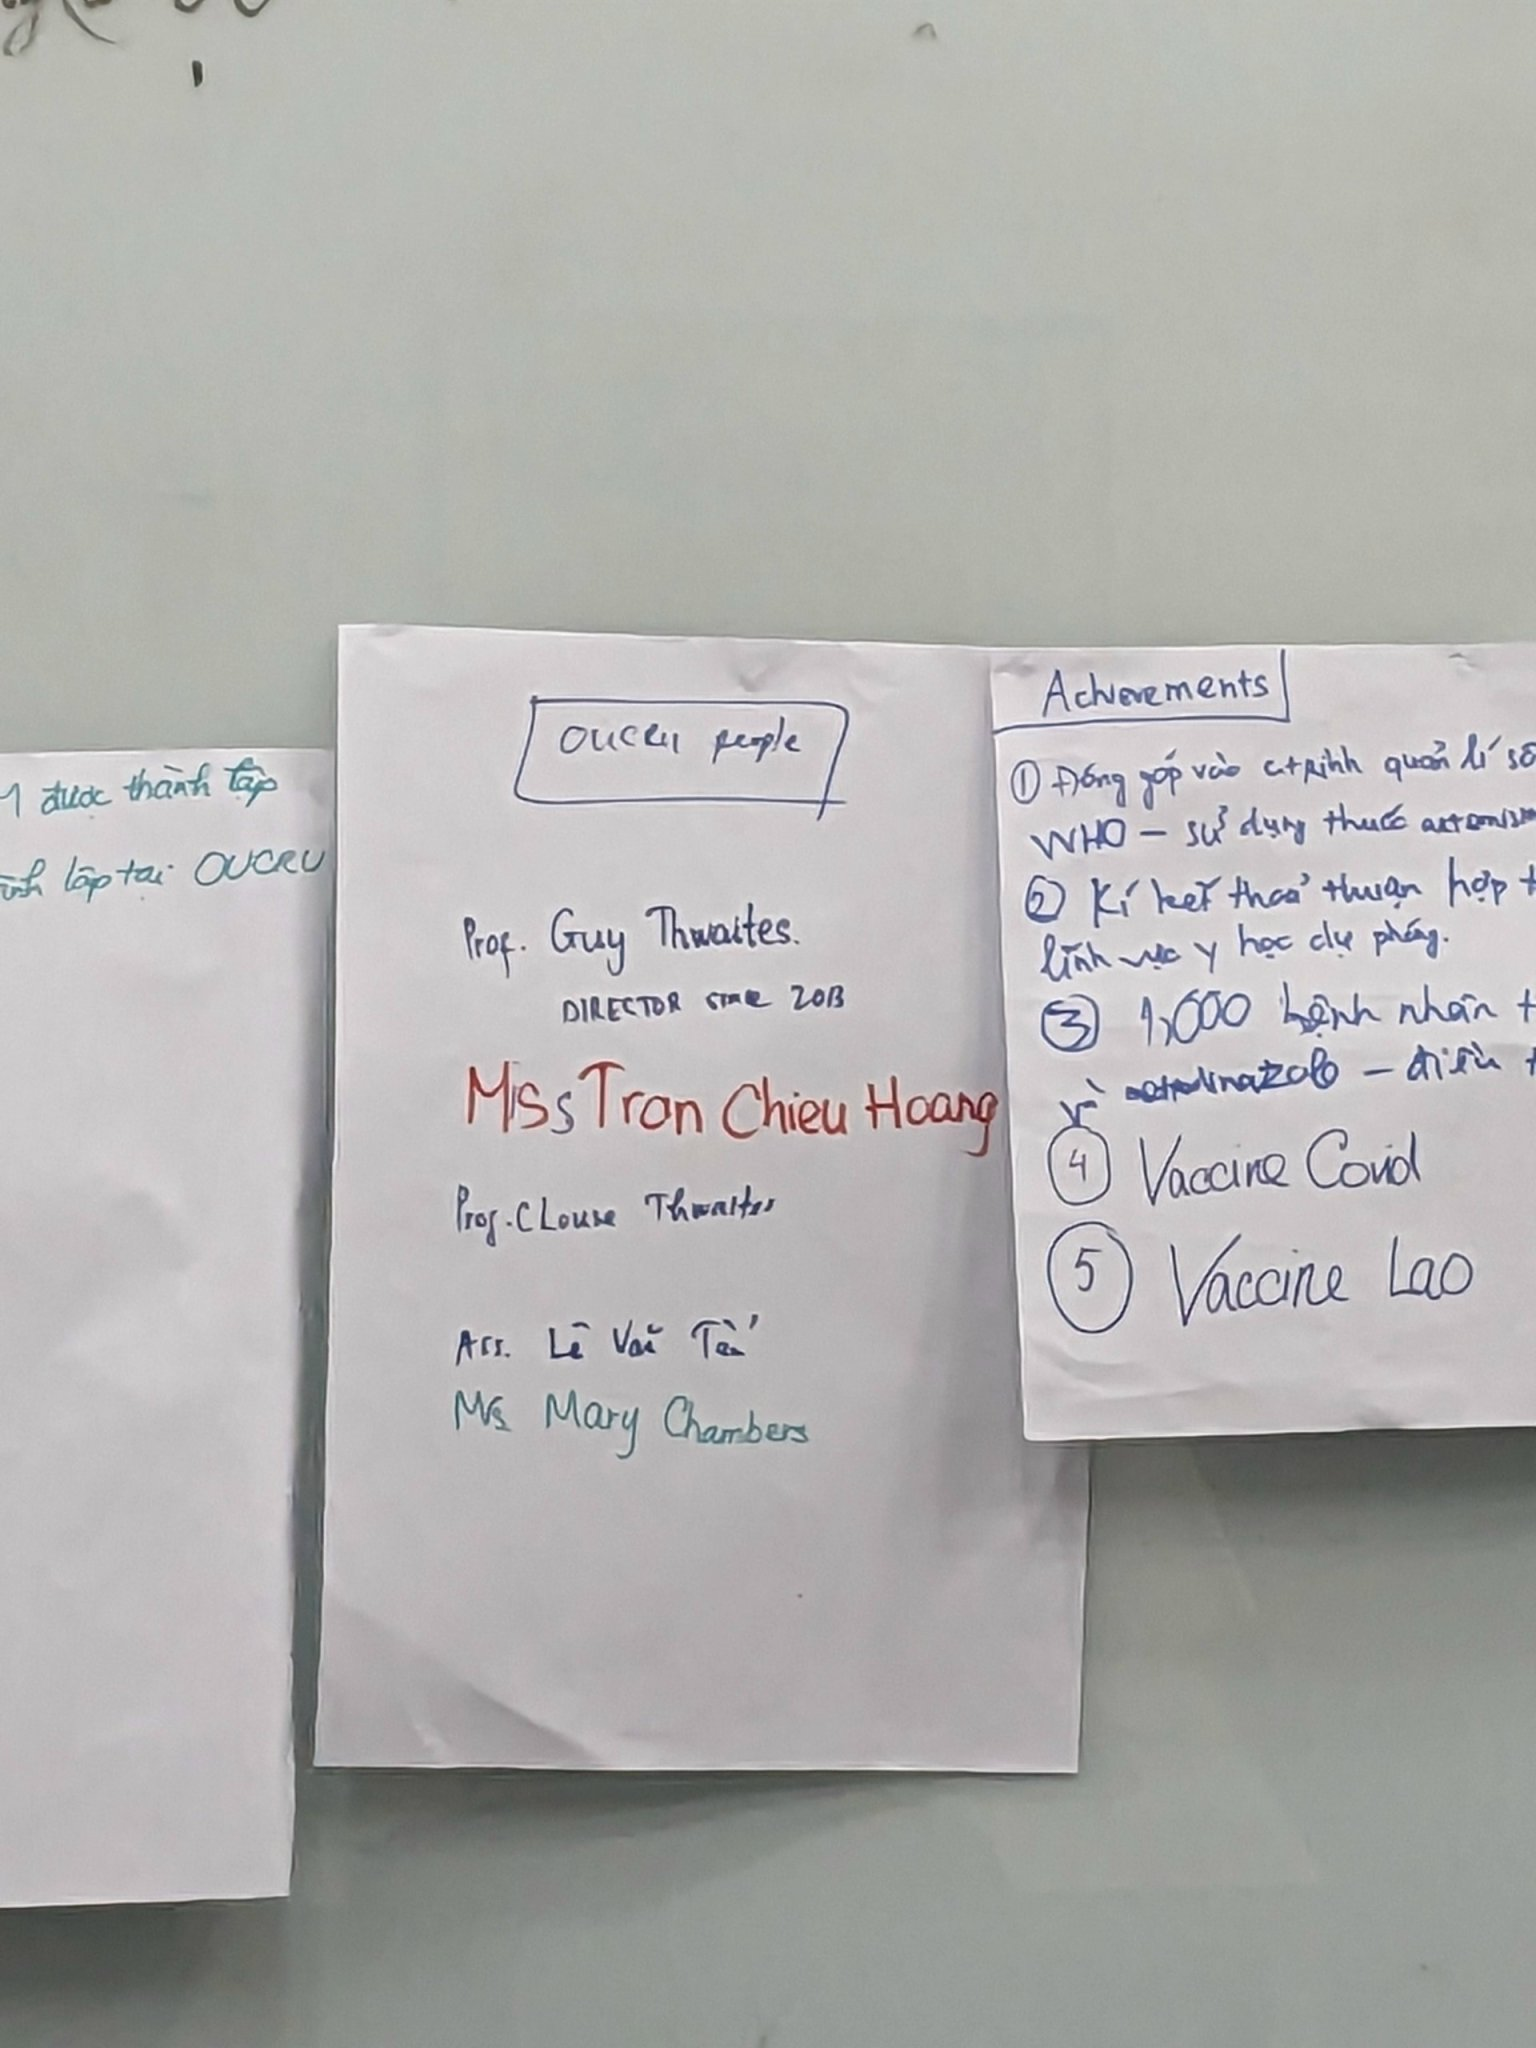 được thành lập
lập tại OUCRU
OUCRU people
Prof. Guy Thwaites.
DIRECTOR since 2013
Miss Tran Chieu Hoang
Prof. C Louise Thwaites
Ass. Lê Văn Tấn
Ms Mary Chambers
Achievements
① Đóng góp vào ctrình quản lí số
WHO – sử dụng thuốc
② Kí kết thoả thuận hợp
lĩnh vực y học dự phòng.
③ 1,000 bệnh nhân
và – điều
④ Vaccine Covid
⑤ Vaccine Lao